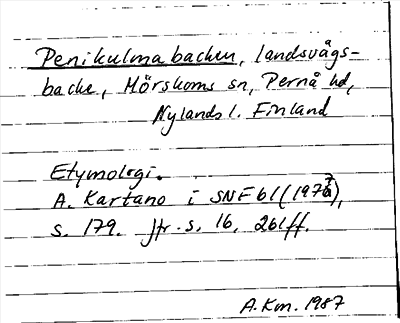 Penikulmabacken, landsvägs-
backe, Mörskoms sn, Pernå hd,
Nylands l. Finland
Etymologi.
A. Kartano i SNF 61 (1976),
s. 179. Jfr s. 16, 261 ff.
A.Km. 1987